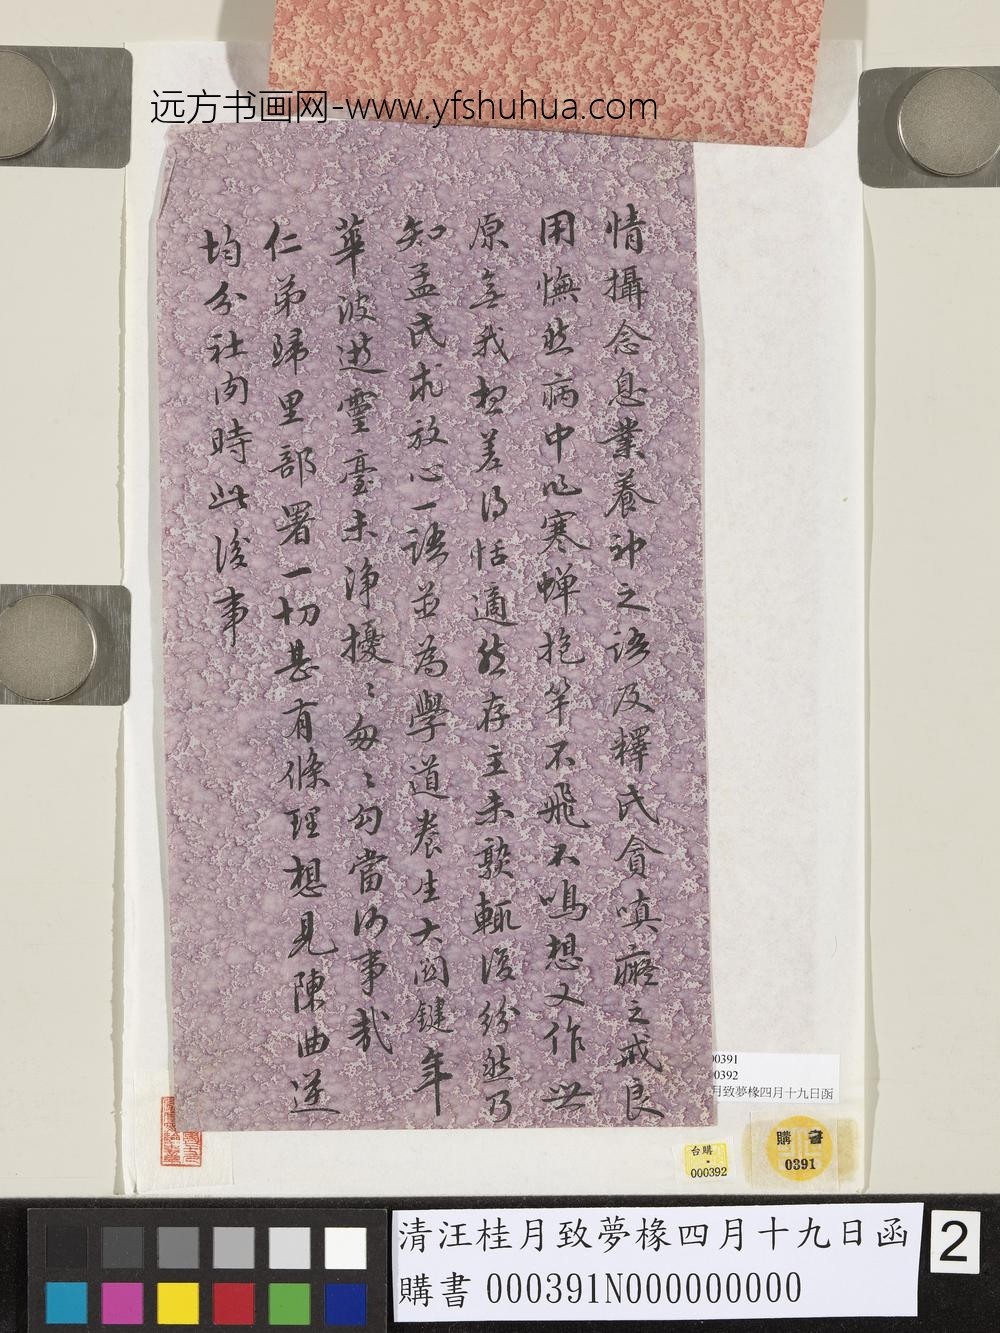 远方书画网-www.yfshuhua.com
情攝念息業養神之語及釋氏貪嗔癡之戒良
用憮然病中以寒蟬抱竿不飛不鳴想又作世
原無我想差得恬適然存主未熟輒復紛然乃
知孟氏求放心一語並為學道養生大関鍵年
華波逝靈臺未淨擾〻匆〻勾當何事哉
仁弟歸里部署一切甚有條理想見陳曲逆
均分社肉時此後事
00391
00392
月致夢椽四月十九日函
購書
0391
台購
000392
清汪桂月致夢椽四月十九日函
購書 000391N000000000
2